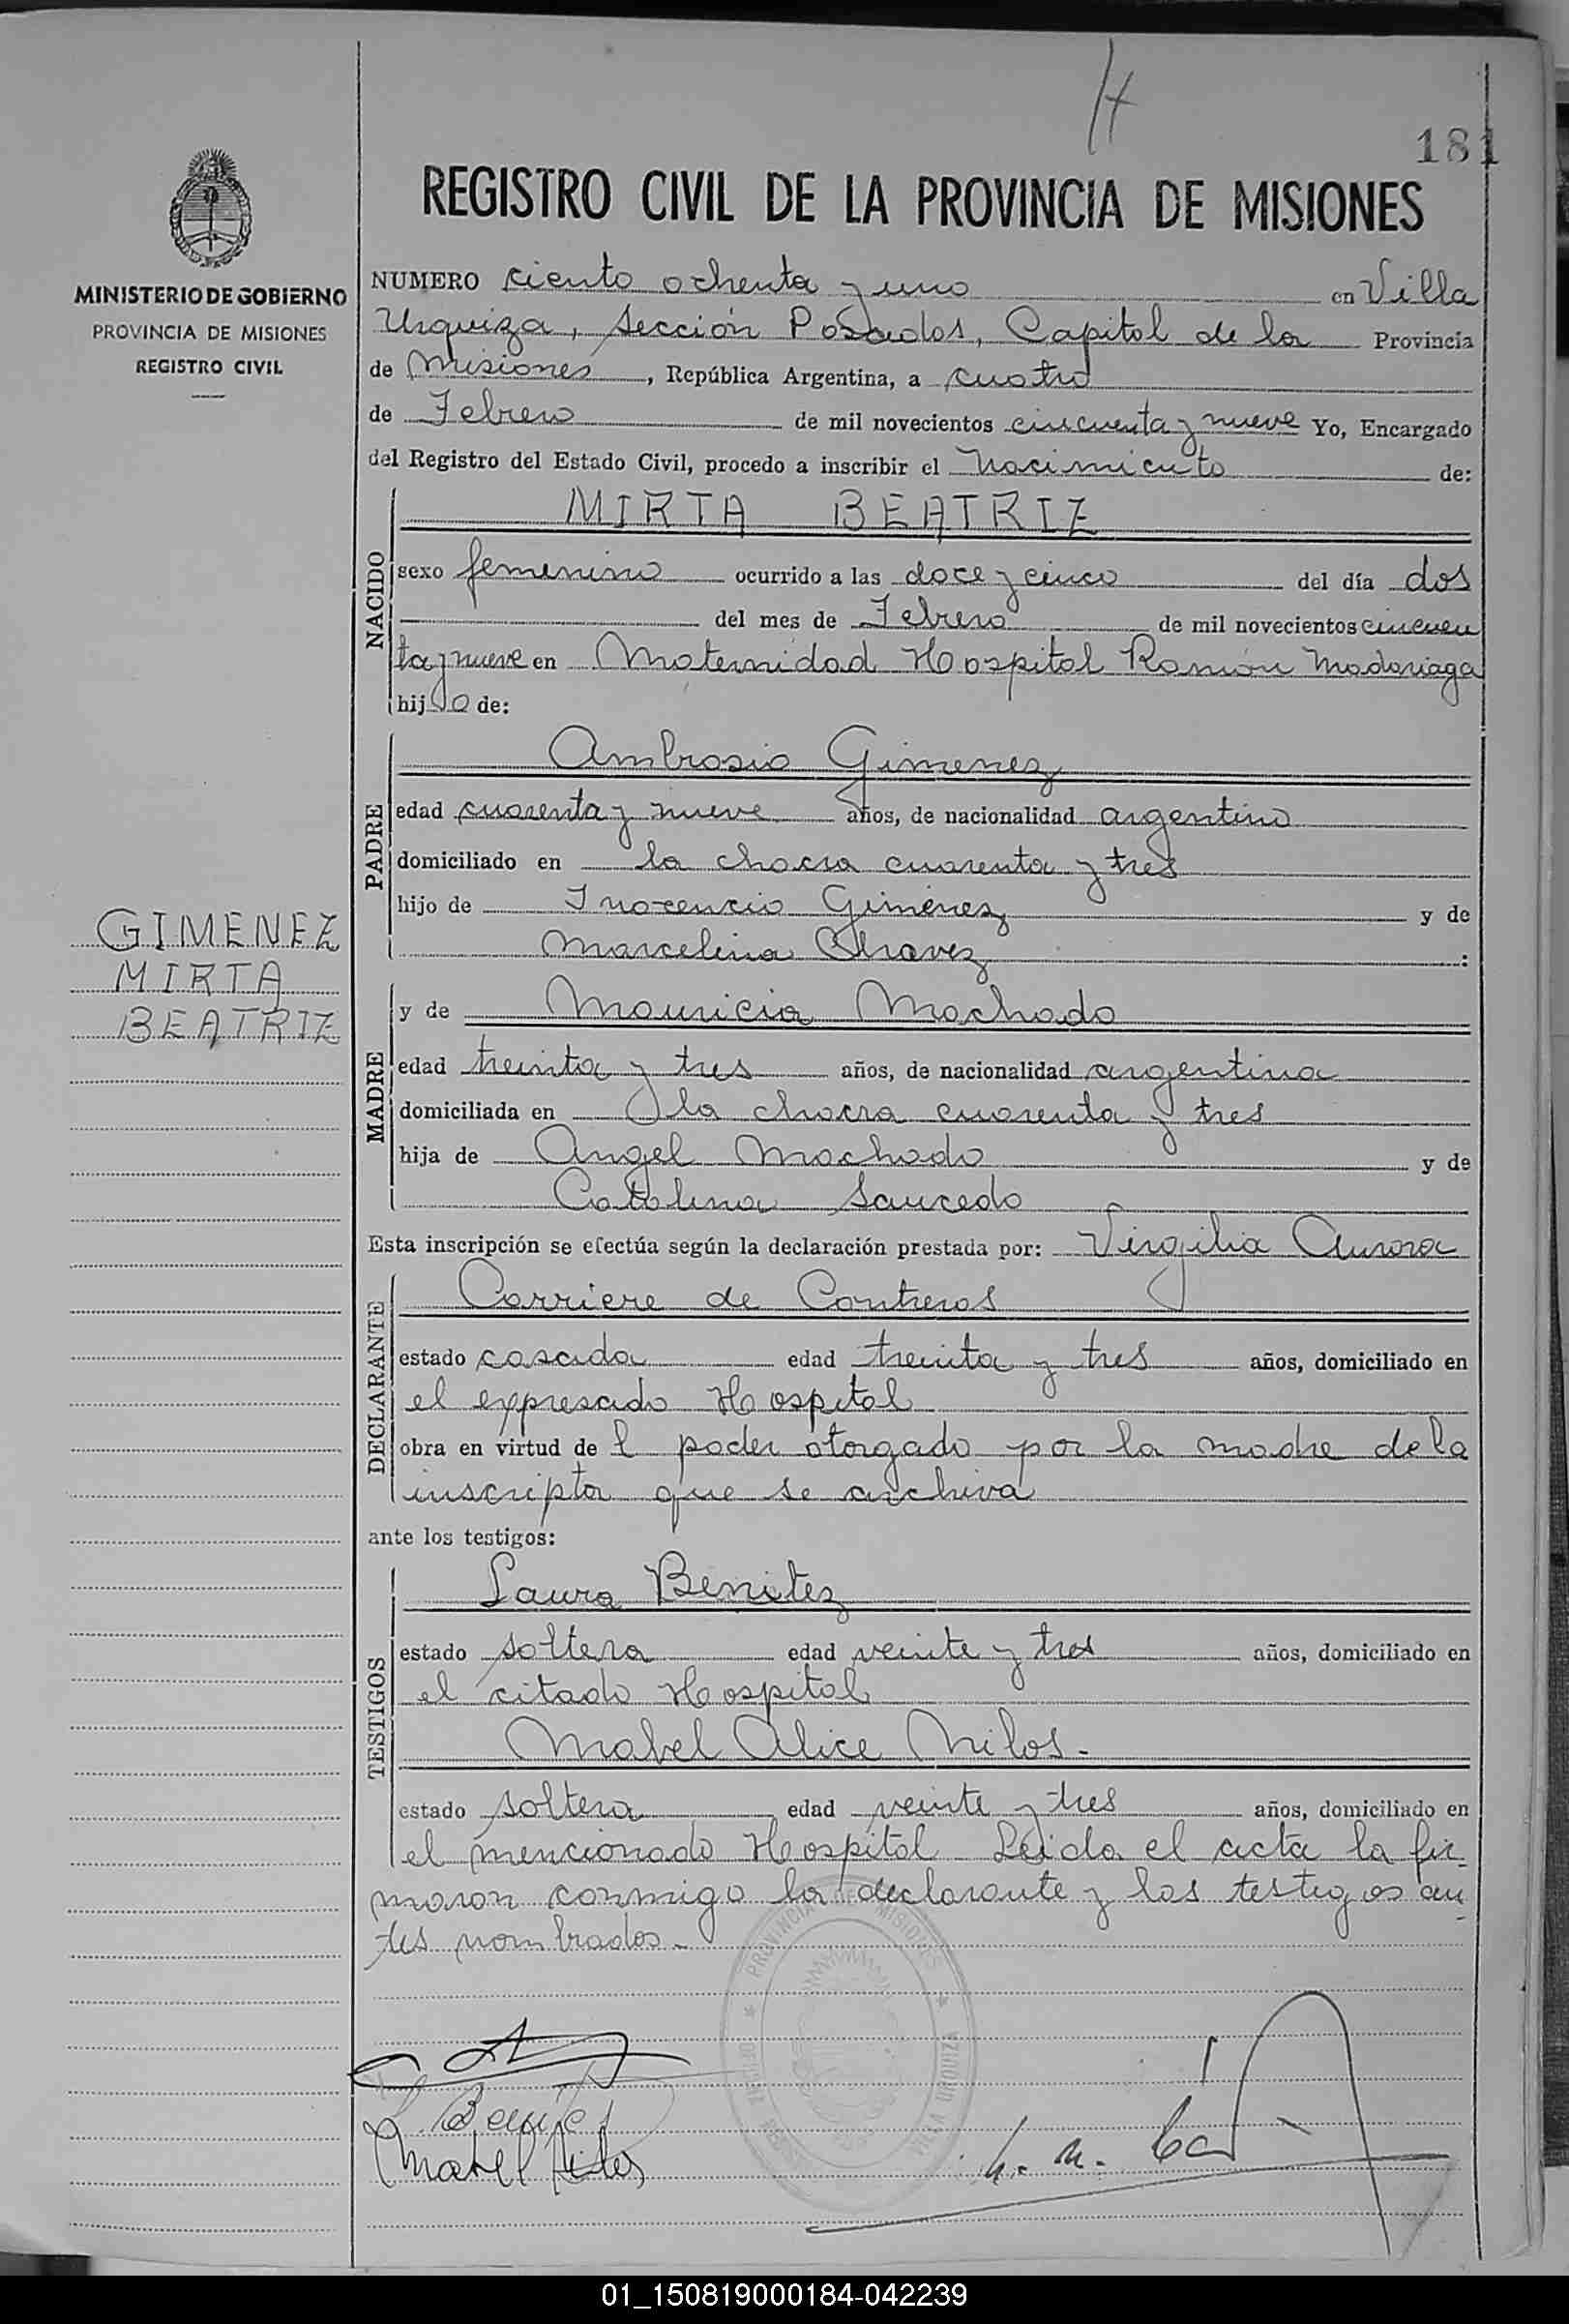 181
REGISTRO CIVIL DE LA PROVINCIA DE MISIONES
MINISTERIO DE GOBIERNO
PROVINCIA DE MISIONES
REGISTRO CIVIL
NUMERO ciento ochenta y uno en Villa
Urquiza, Sección Posadas, Capital de la Provincia
de Misiones, República Argentina, a cuatro
de Febrero de mil novecientos cincuenta y nueve Yo, Encargado
del Registro del Estado Civil, procedo a inscribir el Nacimiento de:
NACIDO
MIRTA BEATRIZ
sexo femenino ocurrido a las doce y cinco del día dos
del mes de Febrero de mil novecientos cincuen
ta y nueve en Maternidad Hospital Ramón Madariaga
hija de:
PADRE
Ambrosio Gimenez
edad cuarenta y nueve años, de nacionalidad argentino
domiciliado en la chacra cuarenta y tres
hijo de Inocencio Gimenez y de
Marcelina Chavez :
GIMENEZ
MIRTA
BEATRIZ
MADRE
y de Mauricia Machado
edad treinta y tres años, de nacionalidad argentina
domiciliada en la chacra cuarenta y tres
hija de Angel Machado y de
Catalina Saucedo
Esta inscripción se efectúa según la declaración prestada por: Virgilia Aurora
DECLARANTE
Carriere de Contreras
estado casada edad treinta y tres años, domiciliado en
el expresado Hospital
obra en virtud de l poder otorgado por la madre de la
inscripta que se archiva
ante los testigos:
TESTIGOS
Laura Benitez
estado soltera edad veinte y tres años, domiciliado en
el citado Hospital
Mabel Alice Milos.-
estado soltera edad veinte y tres años, domiciliado en
el mencionado Hospital Leida el acta la fir-
maron conmigo la declarante y los testigos an-
tes nombrados.-
PROVINCIA DE MISIONES
VILLA URQUIZA
L. Benitez
Mabel Milos
01_150819000184-042239